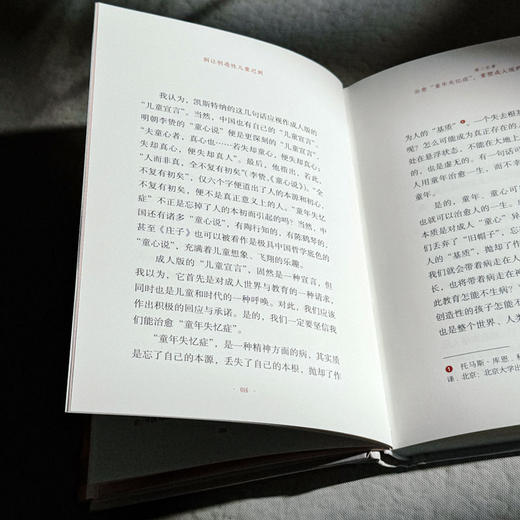 别让创造性儿童迟到
我认为，凯斯特纳的这几句话应视作成人版的
“儿童宣言”。当然，中国也有自己的“儿童宣言”，
明朝李贽的“童心说”便是更深刻的“儿童宣言”：
“夫童心者，真心也……若失却童心，便失却真心；
失却真心，便失却真人”。最后，他指出，若此，
“人而非真，全不复有初矣”（李贽，《童心说》）。“全
不复有初矣”，仅六个字便道出了人的本源和初心，
不复有初，便不是真正意义上的人。“童年失忆
症”不正是忘掉了人的本初而引起的吗？当然，中
国还有诸多“童心说”，有陶行知的，有陈鹤琴的，
甚至《庄子》也可以被看作是极具中国哲学底色的
“童心说”，充满着儿童想象、飞翔的乐趣。
成人版的“儿童宣言”，固然是一种宣言，但
我以为，它首先是对成人世界与教育的一种请求，
同时也是儿童和时代的一种呼唤。对此，我们应该
作出积极的回应与承诺。是的，我们一定要坚信我
们能治愈“童年失忆症”。
“童年失忆症”，是一种精神方面的病，其实质
是忘了自己的本源，丢失了自己的本根，抛却了作
· 016 ·
治愈“童年失忆症”，重塑成人现
为人的“基质”❶。一个失去根
呢？怎么可能成为真正存在的
处在悬浮状态，不能在大地上
的，也是虚无的。有一句话
人用童年治愈一生，而不幸
童年。
是的，童年、童心可
也就可以治愈人的一生。
本质是对成人“童心”异
们丢弃了“旧帽子”，
人的“基质”，抛却了
们就会带着病走在人
长，也将带着病走进
此教育怎能不生病？
创造性的孩子能不
也是整个世界、人类
❶ 托马斯·库恩．
译．北京：北京大学出